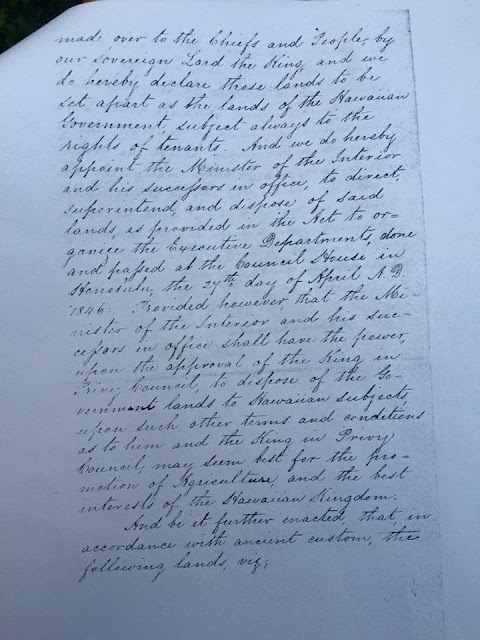 made over to the Chiefs and People, by
our Sovereign Lord the King, and we
do hereby declare those lands to be
set apart as the lands of the Hawaiian
Government, subject always to the
rights of tenants. And we do hereby
appoint the Minister of the Interior
and his successors in office, to direct,
superintend, and dispose of said
lands, as provided in the Act to or-
ganise the Executive Departments, done
and passed at the Council House in
Honolulu, the 27th day of April A.D.
1846. Provided however, that the Mi-
nister of the Interior and his suc-
cessors in office shall have the power,
upon the approval of the King in
Privy Council, to dispose of the Go-
vernment lands to Hawaiian subjects,
upon such other terms and conditions
as to him and the King in Privy
Council, may seem best for the pro-
motion of Agriculture, and the best
interests of the Hawaiian Kingdom.
And be it further enacted, that in
accordance with ancient custom, the
following lands, viz;